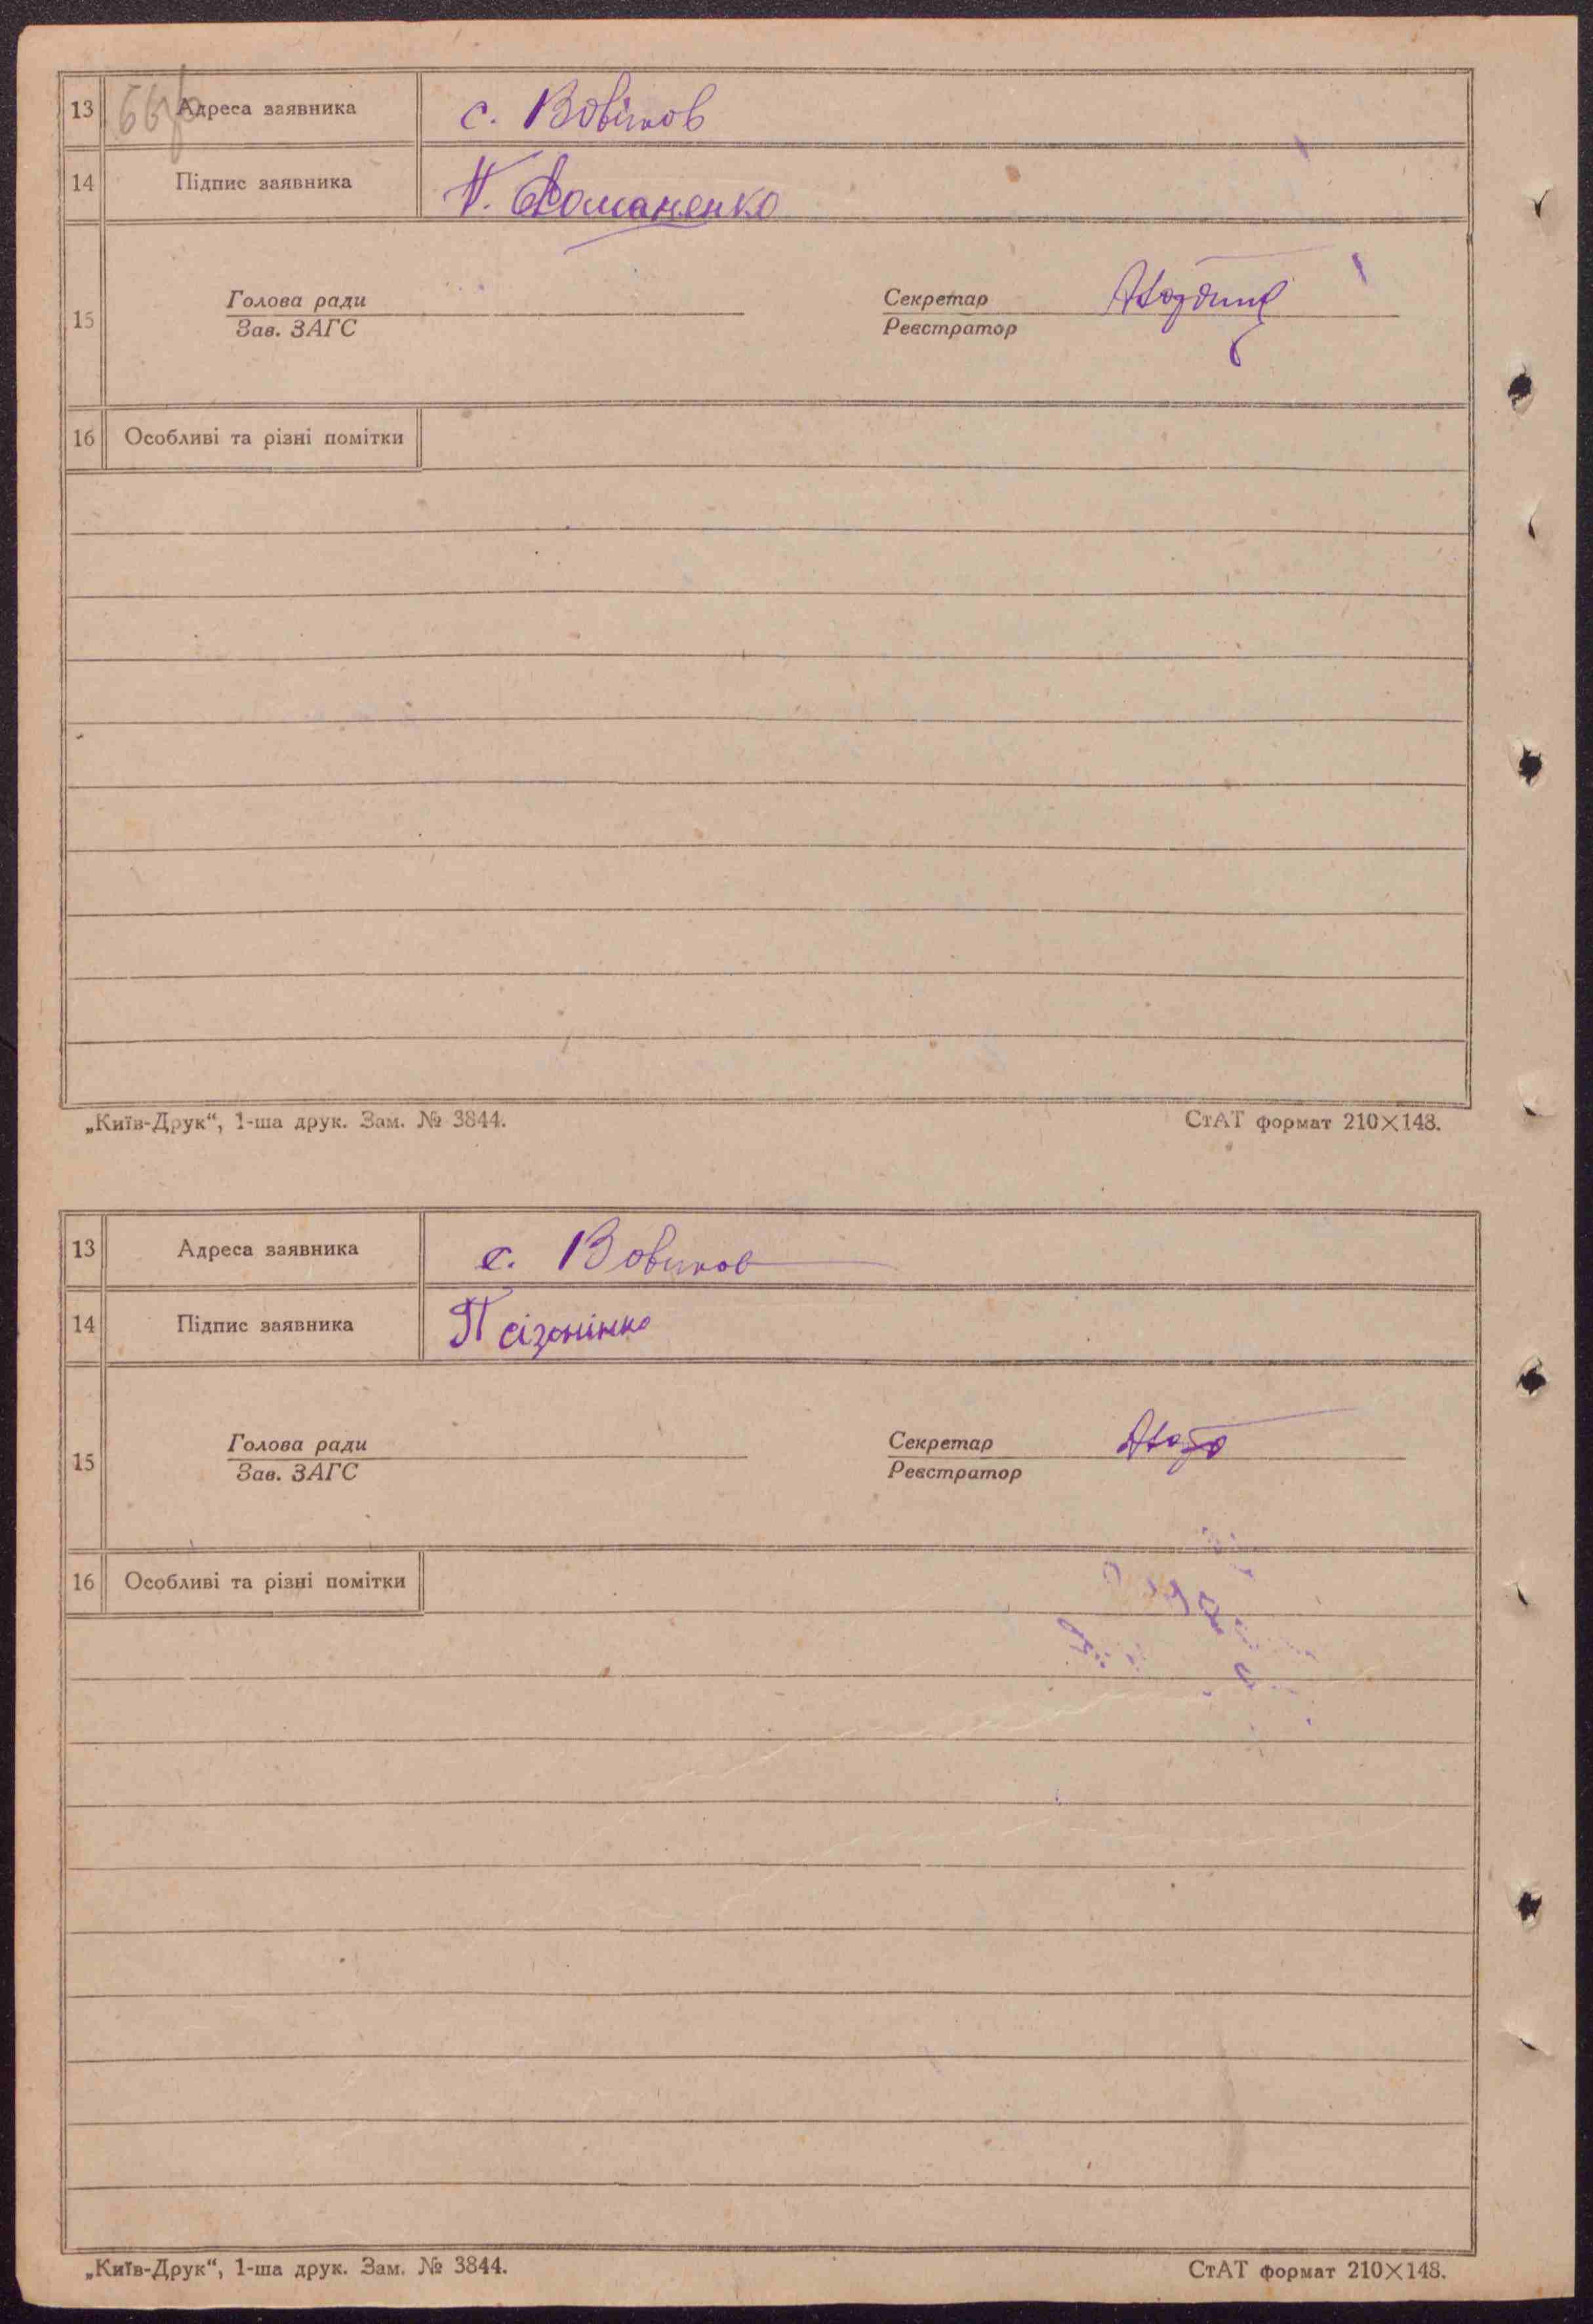 13 Адреса заявника с. Вовчков
14 Підпис заявника Романенко
Голова ради Секретар
15
Зав. ЗАГС Реєстратор
16 Особливі та різні помітки
„Київ-Друк“, 1-ша друк. Зам. № 3844. СтАТ формат 210×148.
13 Адреса заявника с. Вовчков
14 Підпис заявника
Голова ради Секретар
15
Зав. ЗАГС Реєстратор
16 Особливі та різні помітки
„Київ-Друк“, 1-ша друк. Зам. № 3844. СтАТ формат 210×148.